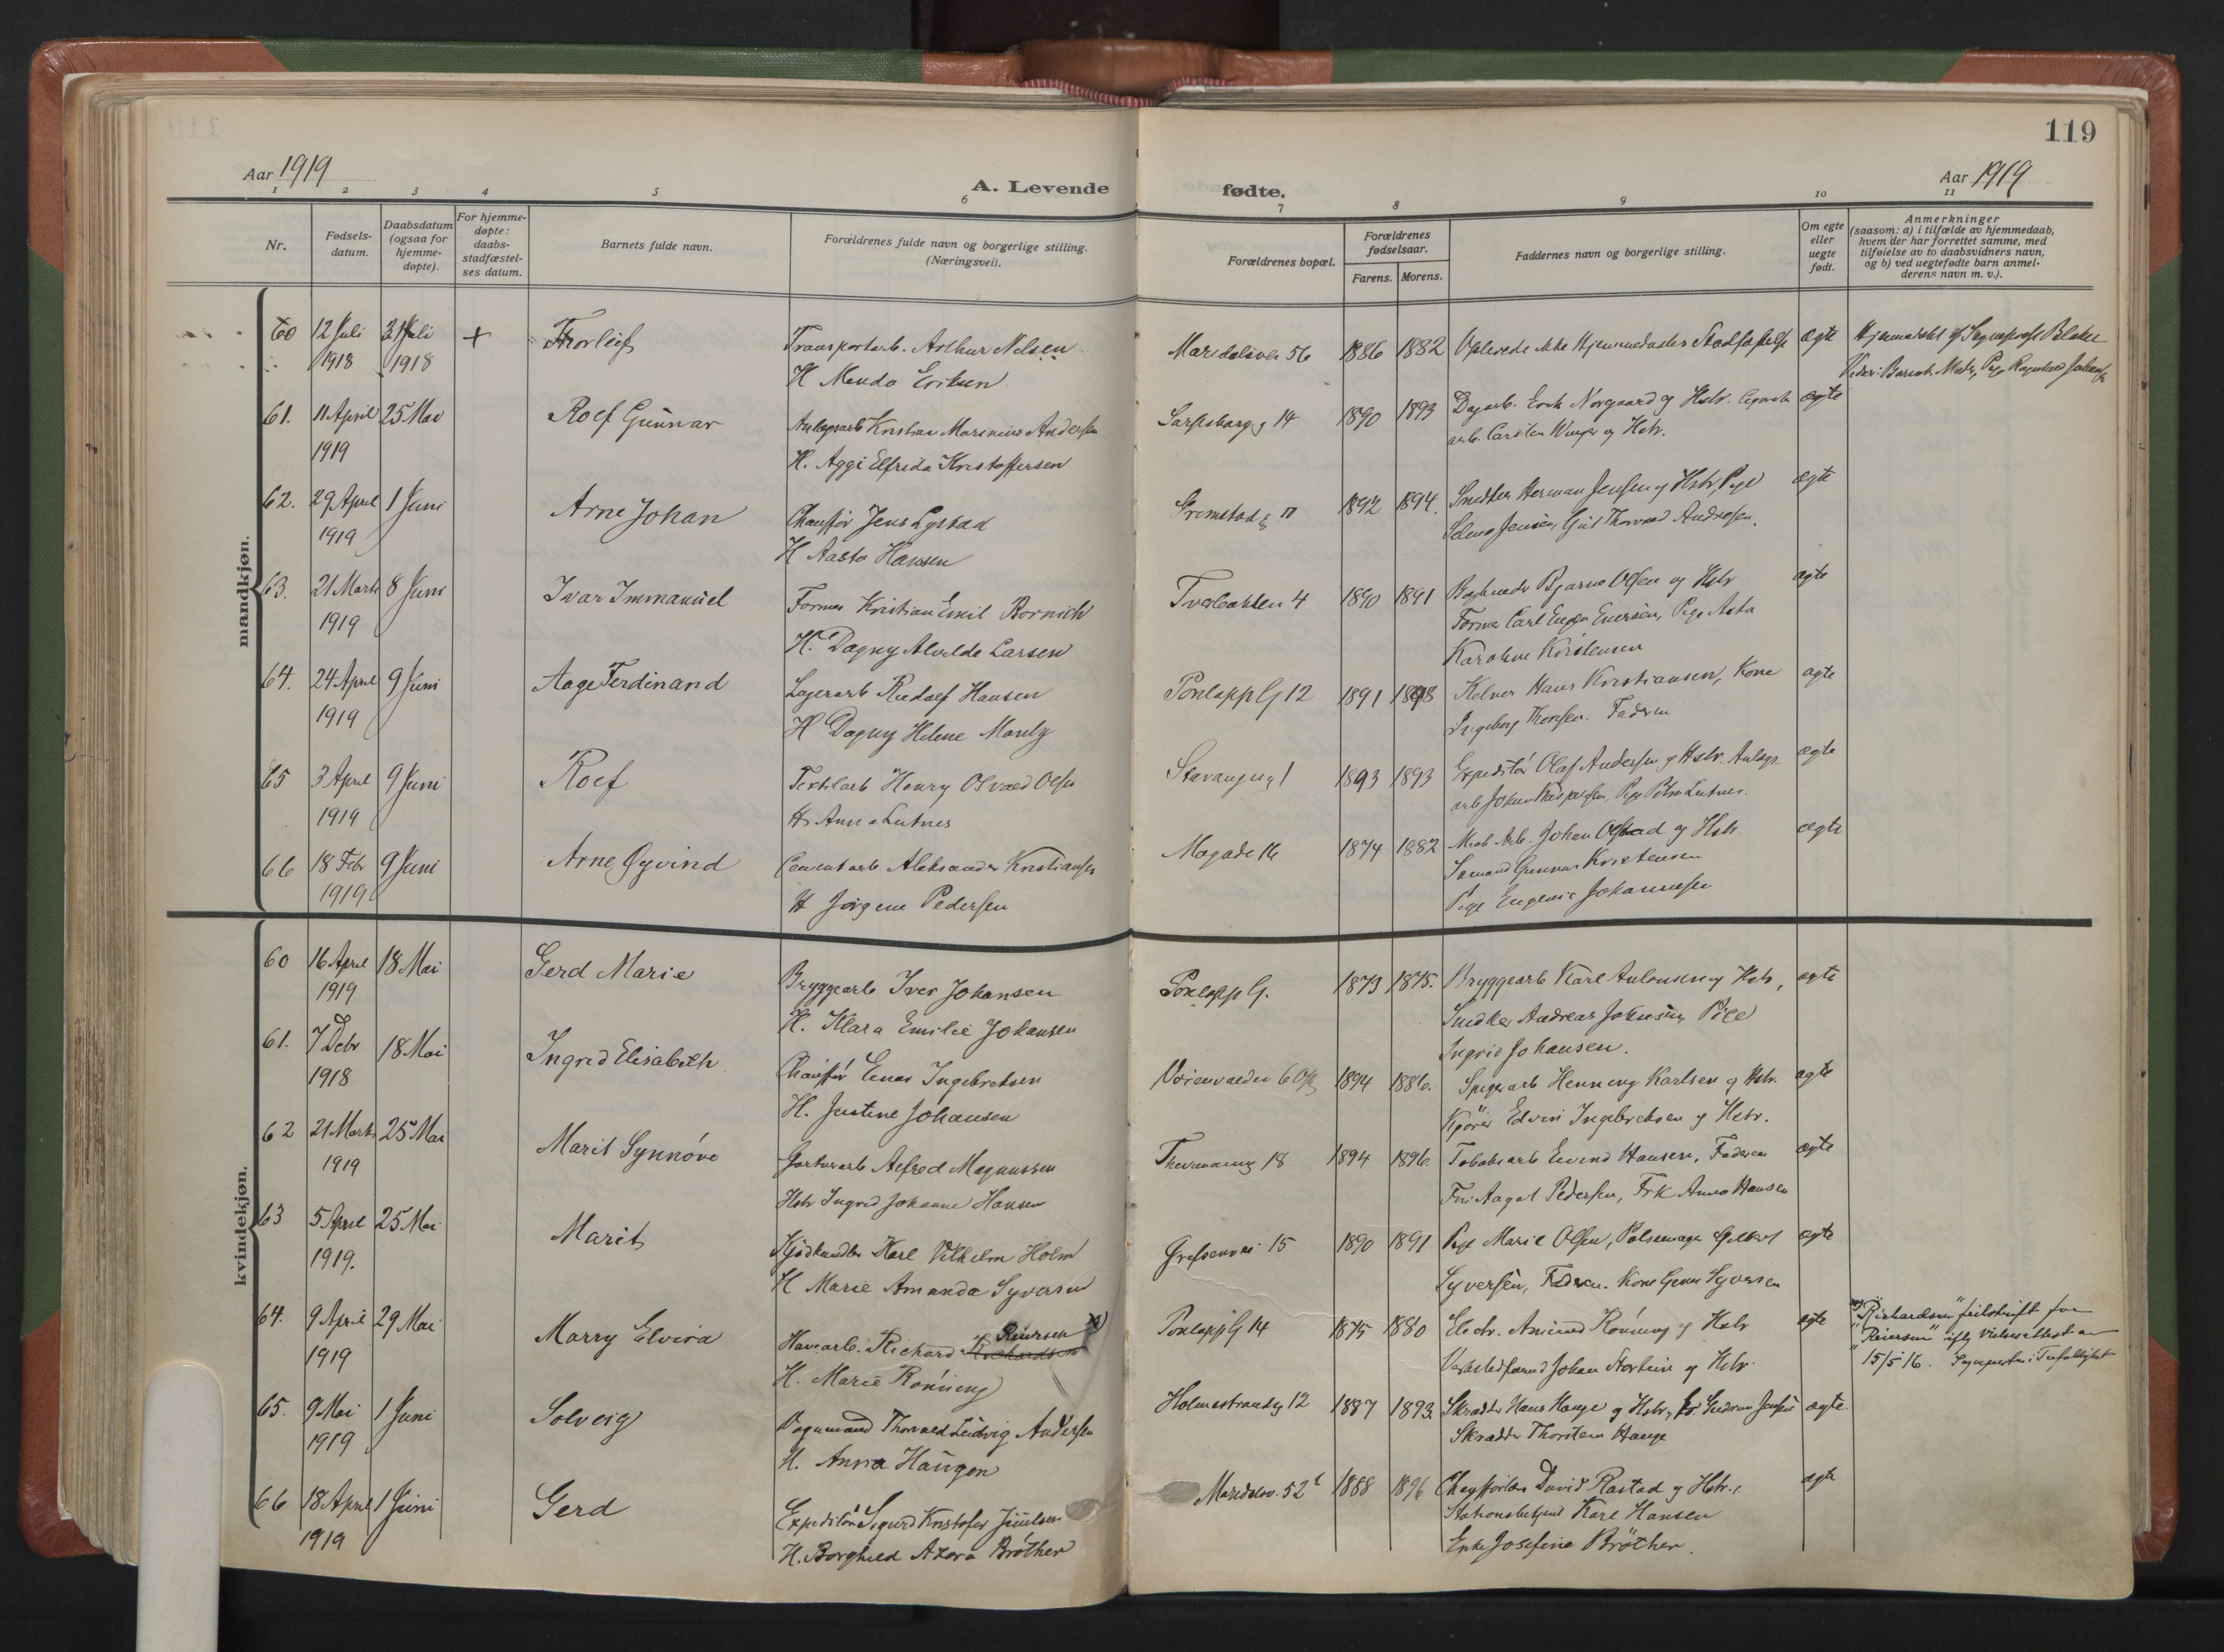 119
Aar 1919
A. Levende fødte.
Aar 1919
1 2 3 4 5 6 7 8 9 10 11
Nr.
Fødsels-
datum.
Daabsdatum
(ogsaa for
hjemme-
døpte).
For hjemme-
døpte:
daabs-
stadfæstel-
ses datum.
Barnets fulde navn.
Forældrenes fulde navn og borgerlige stilling.
(Næringsvei).
Forældrenes bopæl.
Forældrenes
fødselsaar.
Farens. Morens.
Faddernes navn og borgerlige stilling.
Om egte
eller
uegte
født.
Anmerkninger
(saasom: a) i tilfælde av hjemmedaab,
hvem der har forrettet samme, med
tilføielse av to daabsvidners navn,
og b) ved uegtefødte barn anmel-
derens navn m. v.).
mandkjøn.
60 12 Juli 31 Juli + Thorleif Transportarb. Arthur Nilsen Maridalsvei 56 1886 1882 Oplevede ikke Hjemmedaabs Stadfæstelse ægte
1918 1918 H Eriksen
61. 11 April 25 Mai Rolf Gunnar Anlægsarb Kristian Marinius Andersen Sarpsborgg 14 1890 1893 Dagarb. Erik Norgaard og Hstr. ægte
1919 H. Aggi Elfrida Kristoffersen arb. Carsten og Hstr.
62. 29 April 1 Juni Arne Johan Chauffør Jens Lystad Grimstadg 17 1892 1894. Snedker Herman Jensen og Hstr, Pige ægte
1919 H Aasta Hansen Selma Jensen, Thorvald Andresen.
63. 21 Marts 8 Juni Ivar Immanuel Former Kristian Emil Tverbakken 4 1890 1891 Bjarne Olsen og Hstr ægte
1919 H. Dagny Alvilde Larsen Former Carl Eugen Evensen, Pige Asta
Karoline Kristensen
64. 24 April 9 Juni Aage Ferdinand Lagerarb Rudolf Hansen 12 1891 1898 Kelner Hans Kristiansen, Kone ægte
1919 H Dagny Helene Ingeborg Faderen
65 3 April 9 Juni Rolf Textilarb Henry Osvald Olsen Stavangerg 1 1893 1893 Expeditør Olaf Andersen og Hstr. Anlægs ægte
1919 H Anna Lutnes arb Johan Pige Lutnes.
66 18 Febr 9 Juni Arne Øyvind Cementarb Aleksander Kristiansen Mogade 16 1874 1882 Arb. Johan Olstad og Hstr. ægte
1919 H Jörgine Pedersen Sømand Gunnar Kristensen
Pige Eugenie Johannesen
kvindekjøn.
60 16 April 18 Mai Gerd Marie Bryggearb Iver Johansen 1873 1875. Bryggearb Karl Antonsen og Hstr, ægte
1919 H. Klara Emilie Johansen Snedker Andreas Johansen, Pige
Ingrid Johansen.
61. 7 Debr 18 Mai Ingrid Elisabeth Chauffør Einar Ingebretsen 1894 1886. Henning Karlsen og Hstr. ægte
1918 H. Justine Johansen Kjører Edvin Ingebretsen og Hstr.
62 21 Marts 25 Mai Marit Synnöve Garverarb Alfred Magnussen 18 1894 1896. Tobaksarb Eivind Hansen, Faderen ægte
1919 Hstr Ingrid Johanne Hansen Aagot Pedersen, Frk Anna Hansen
63 5 April 25 Mai Marit Kjødhandler Karl Vilhelm Holm Grefsenvei 15 1890 1891 Pige Marie Olsen, Pølsemager ægte
1919. H Marie Amanda Syversen Syversen, Faderen. Kone Syversen
64. 9 April 29 Mai Marry Elvira Havearb. Richard Richardsen Reiersen x) 14 1875 1880 Electr. Amund Rönning og Hstr ægte x) "Richardsen" feilskrift for
1919 H. Marie Rönning Johan og Hstr. "Reiersen" iflg Vielsesattest av
15/5 16.
65. 9 Mai 1 Juni Solveig Vognmand Thorvald Ludvig Andersen Holmestrandg 12 1887 1893. Skrædder Hans Hauge og Hstr, Gudrun Jensen ægte
1919 H. Anna Haugen Skrædder Thorstein Hauge
66 18 April 1 Juni Gerd Expeditør Sigurd Kristofer Juulsen Maridalsv. 52 1888 1896 David Rastad og Hstr., ægte
1919 H. Borghild Azora Bröther Stationsbetjent Karl Hansen
Enke Josefine Bröther.